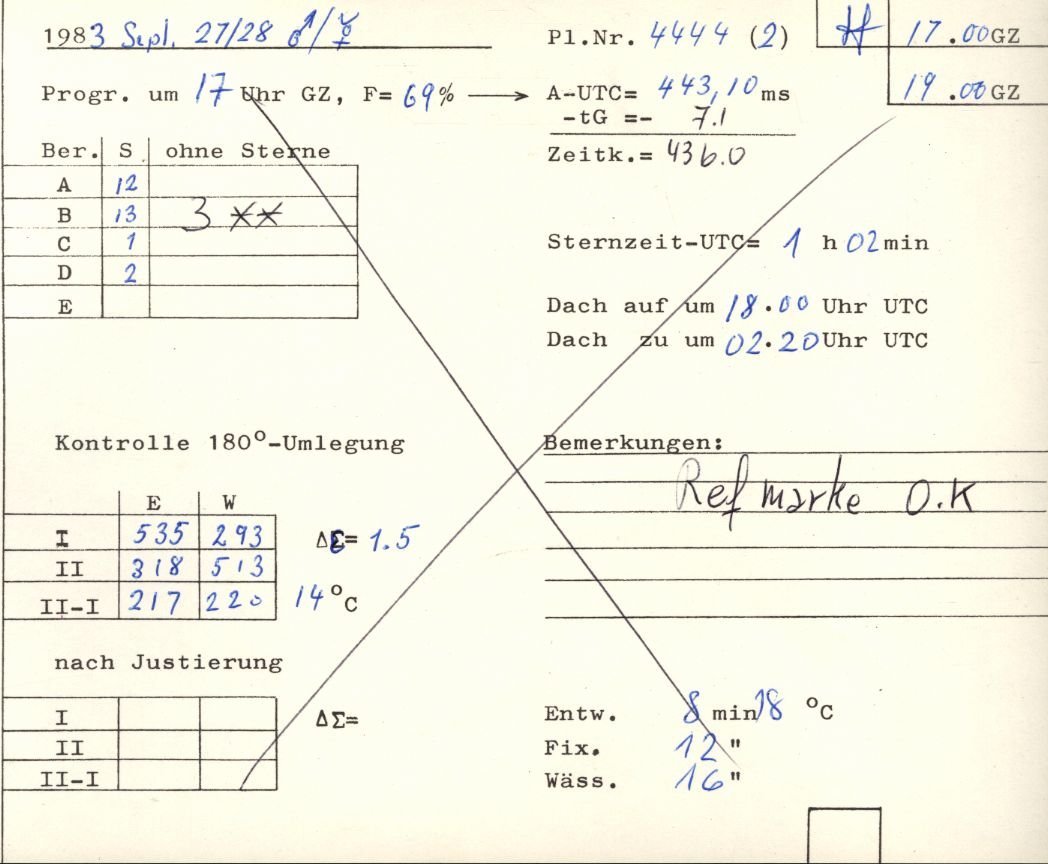 1983 Sept. 27/28 ♂/☿
Pl.Nr. 4444 (2)
17.00GZ
19.00GZ
Progr. um 17 Uhr GZ, F= 69% → A-UTC= 443,10 ms
-tG =- 7.1
Zeitk.= 436.0
Ber. S ohne Sterne
A 12
B 13 3 **
C 1
D 2
E
Sternzeit-UTC= 1 h 02 min
Dach auf um 18.00 Uhr UTC
Dach zu um 02.20 Uhr UTC
Kontrolle 180°-Umlegung
E W
I 535 293 ΔΣ= 1.5
II 318 513
II-I 217 220 14°C
Bemerkungen:
Ref marke O.K
nach Justierung
I ΔΣ=
II
II-I
Entw. 8 min 18 °C
Fix. 12 "
Wäss. 16 "